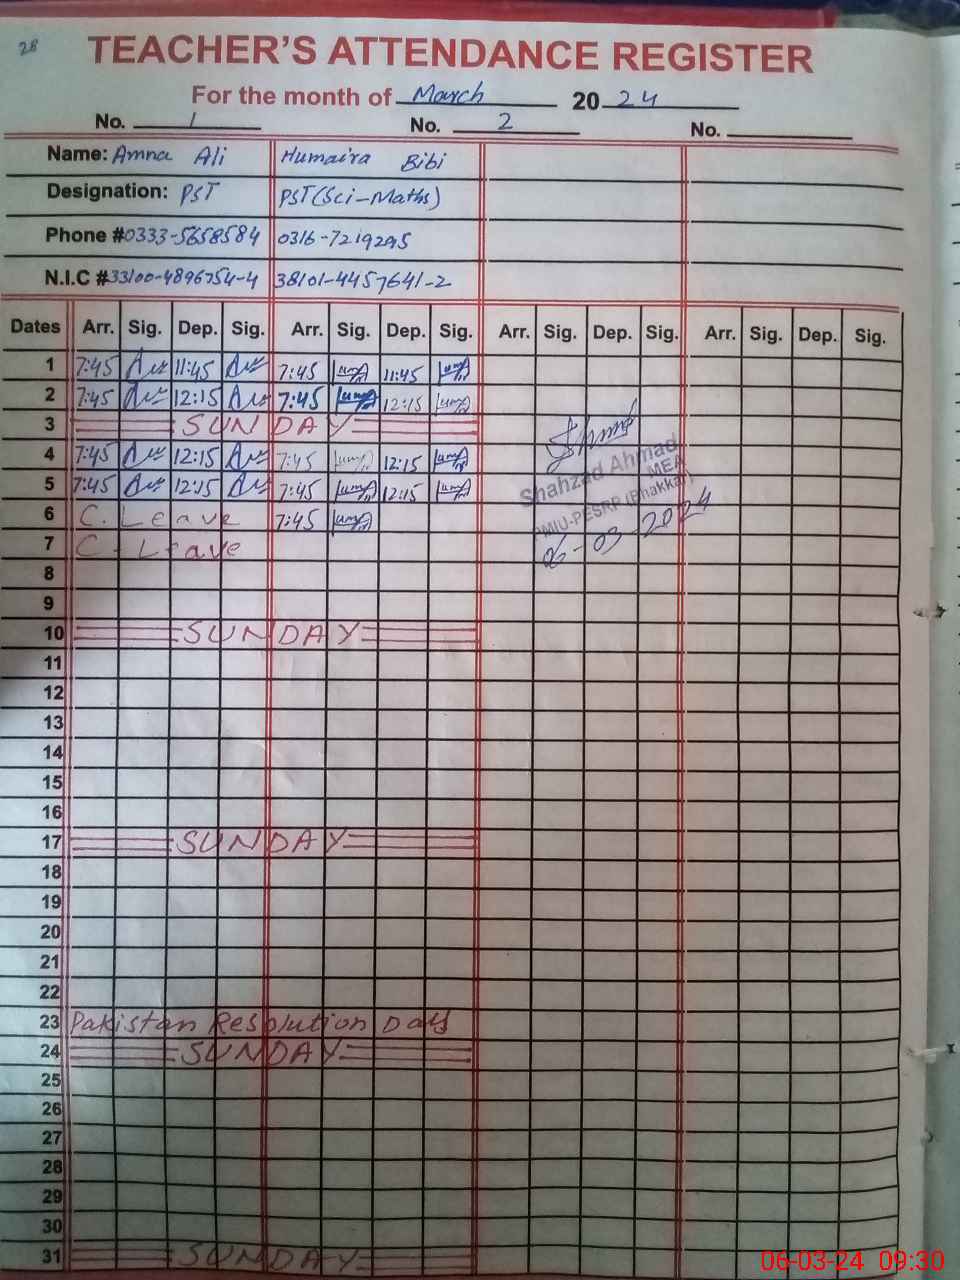 28
TEACHER'S ATTENDANCE REGISTER
For the month of March 2024
No. 1 No. 2 No.
Name: Amna Ali Humaira Bibi
Designation: PST PST (Sci-Maths)
Phone #0333-5658584 0316-7219295
N.I.C #33100-4896754-4 38101-4457641-2
Dates Arr. Sig. Dep. Sig. Arr. Sig. Dep. Sig. Arr. Sig. Dep. Sig. Arr. Sig. Dep. Sig.
1 7:45 11:45 7:45 11:45
2 7:45 12:15 7:45 12:15
3 SUNDAY
4 7:45 12:15 7:45 12:15
5 7:45 12:15 7:45 12:15
6 C. Leave 7:45
7 C. Leave
Shahzad Ahmad
MEA
PMIU-PESRP (Bhakkar)
06-03-2024
8
9
10 SUNDAY
11
12
13
14
15
16
17 SUNDAY
18
19
20
21
22
23 Pakistan Resolution Day
24 SUNDAY
25
26
27
28
29
30
31 SUNDAY
06-03-24 09:30